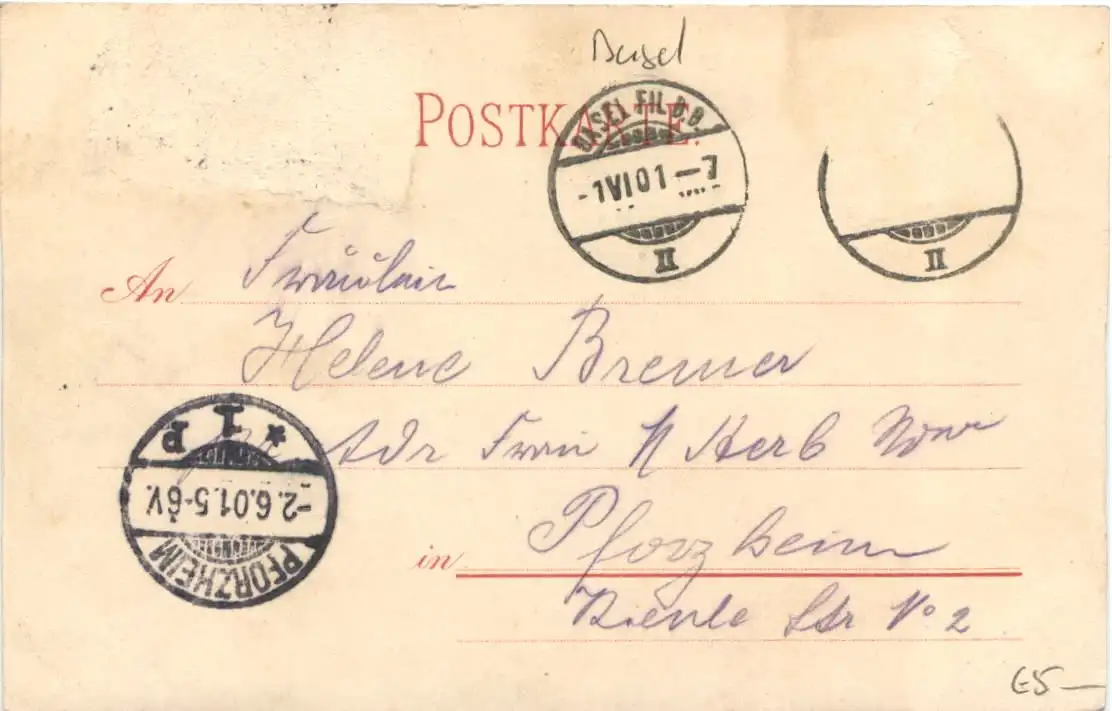 Basel
POSTKARTE.
BASEL FIL. B.B.
-1 VI 01 — 7
II
II
An Fräulein
Helene Bremer
Adr Frau N Herb
in Pforzheim
Kienle Str No 2
PFORZHEIM
-2.6.01.5-6V.
* 1 P
€5—